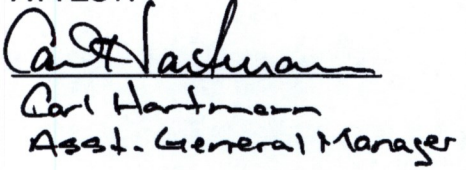 Carl Hartmann
Carl Hartmann
Asst. General Manager